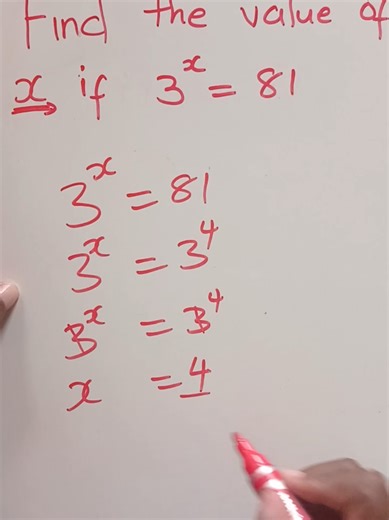 Find the value of
x if 3^x = 81
3^x = 81
3^x = 3^4
3^x = 3^4
x = 4